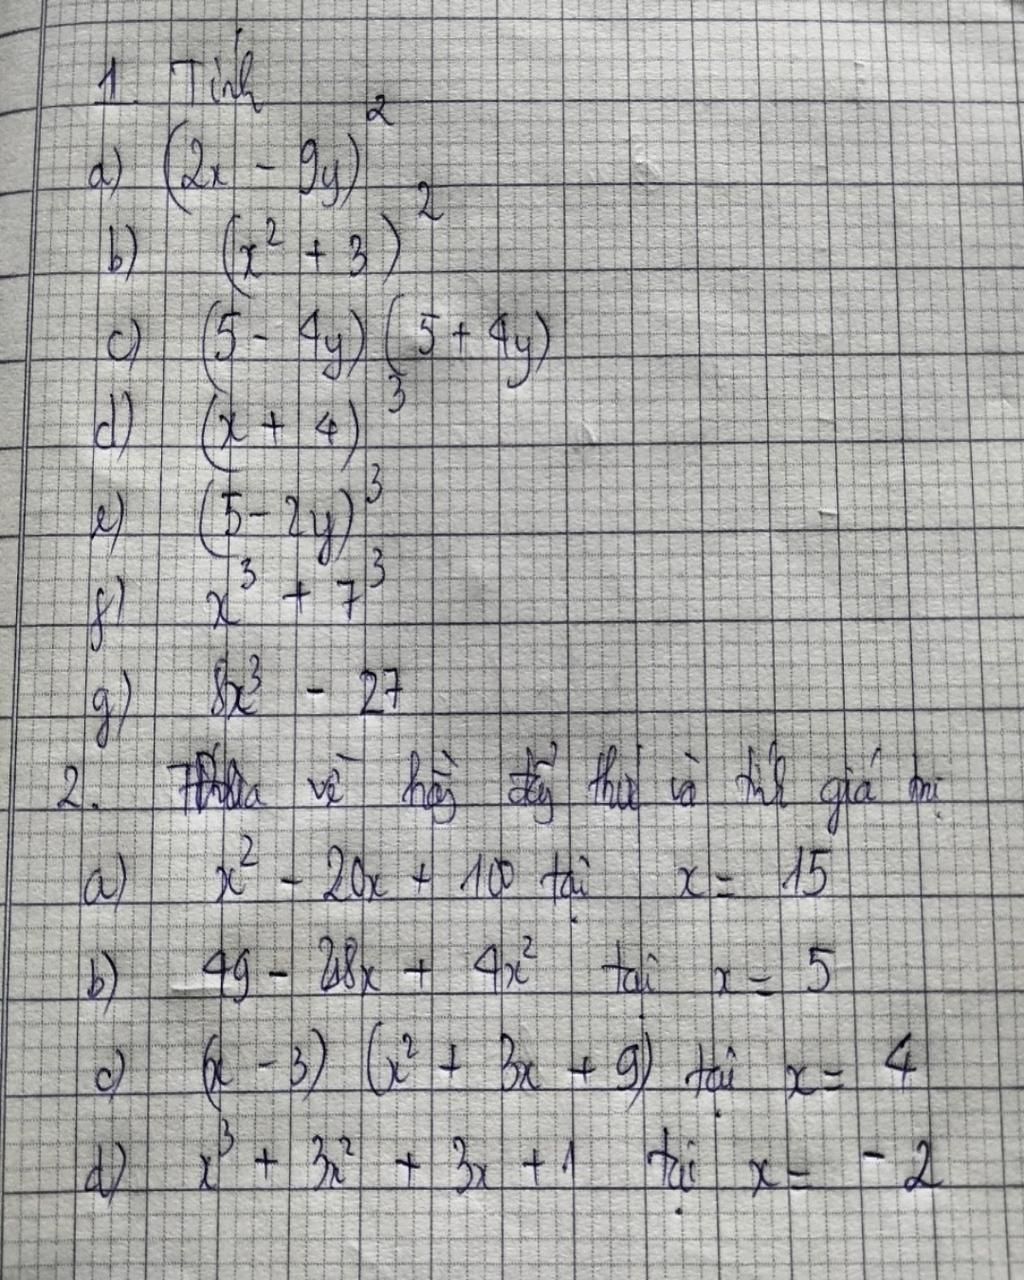 1. Tính
a) (2x - 9y)²
b) (x² + 3)²
c) (5 - 4y) (5 + 4y)
d) (x + 4)³
e) (5 - 2y)³
f) x³ + 7³
g) 8x³ - 27
2. về hằng đẳng thức và tính giá trị
a) x² - 20x + 100 tại x = 15
b) 49 - 28x + 4x² tại x = 5
c) (x - 3) (x² + 3x + 9) tại x = 4
d) x³ + 3x² + 3x + 1 tại x = - 2